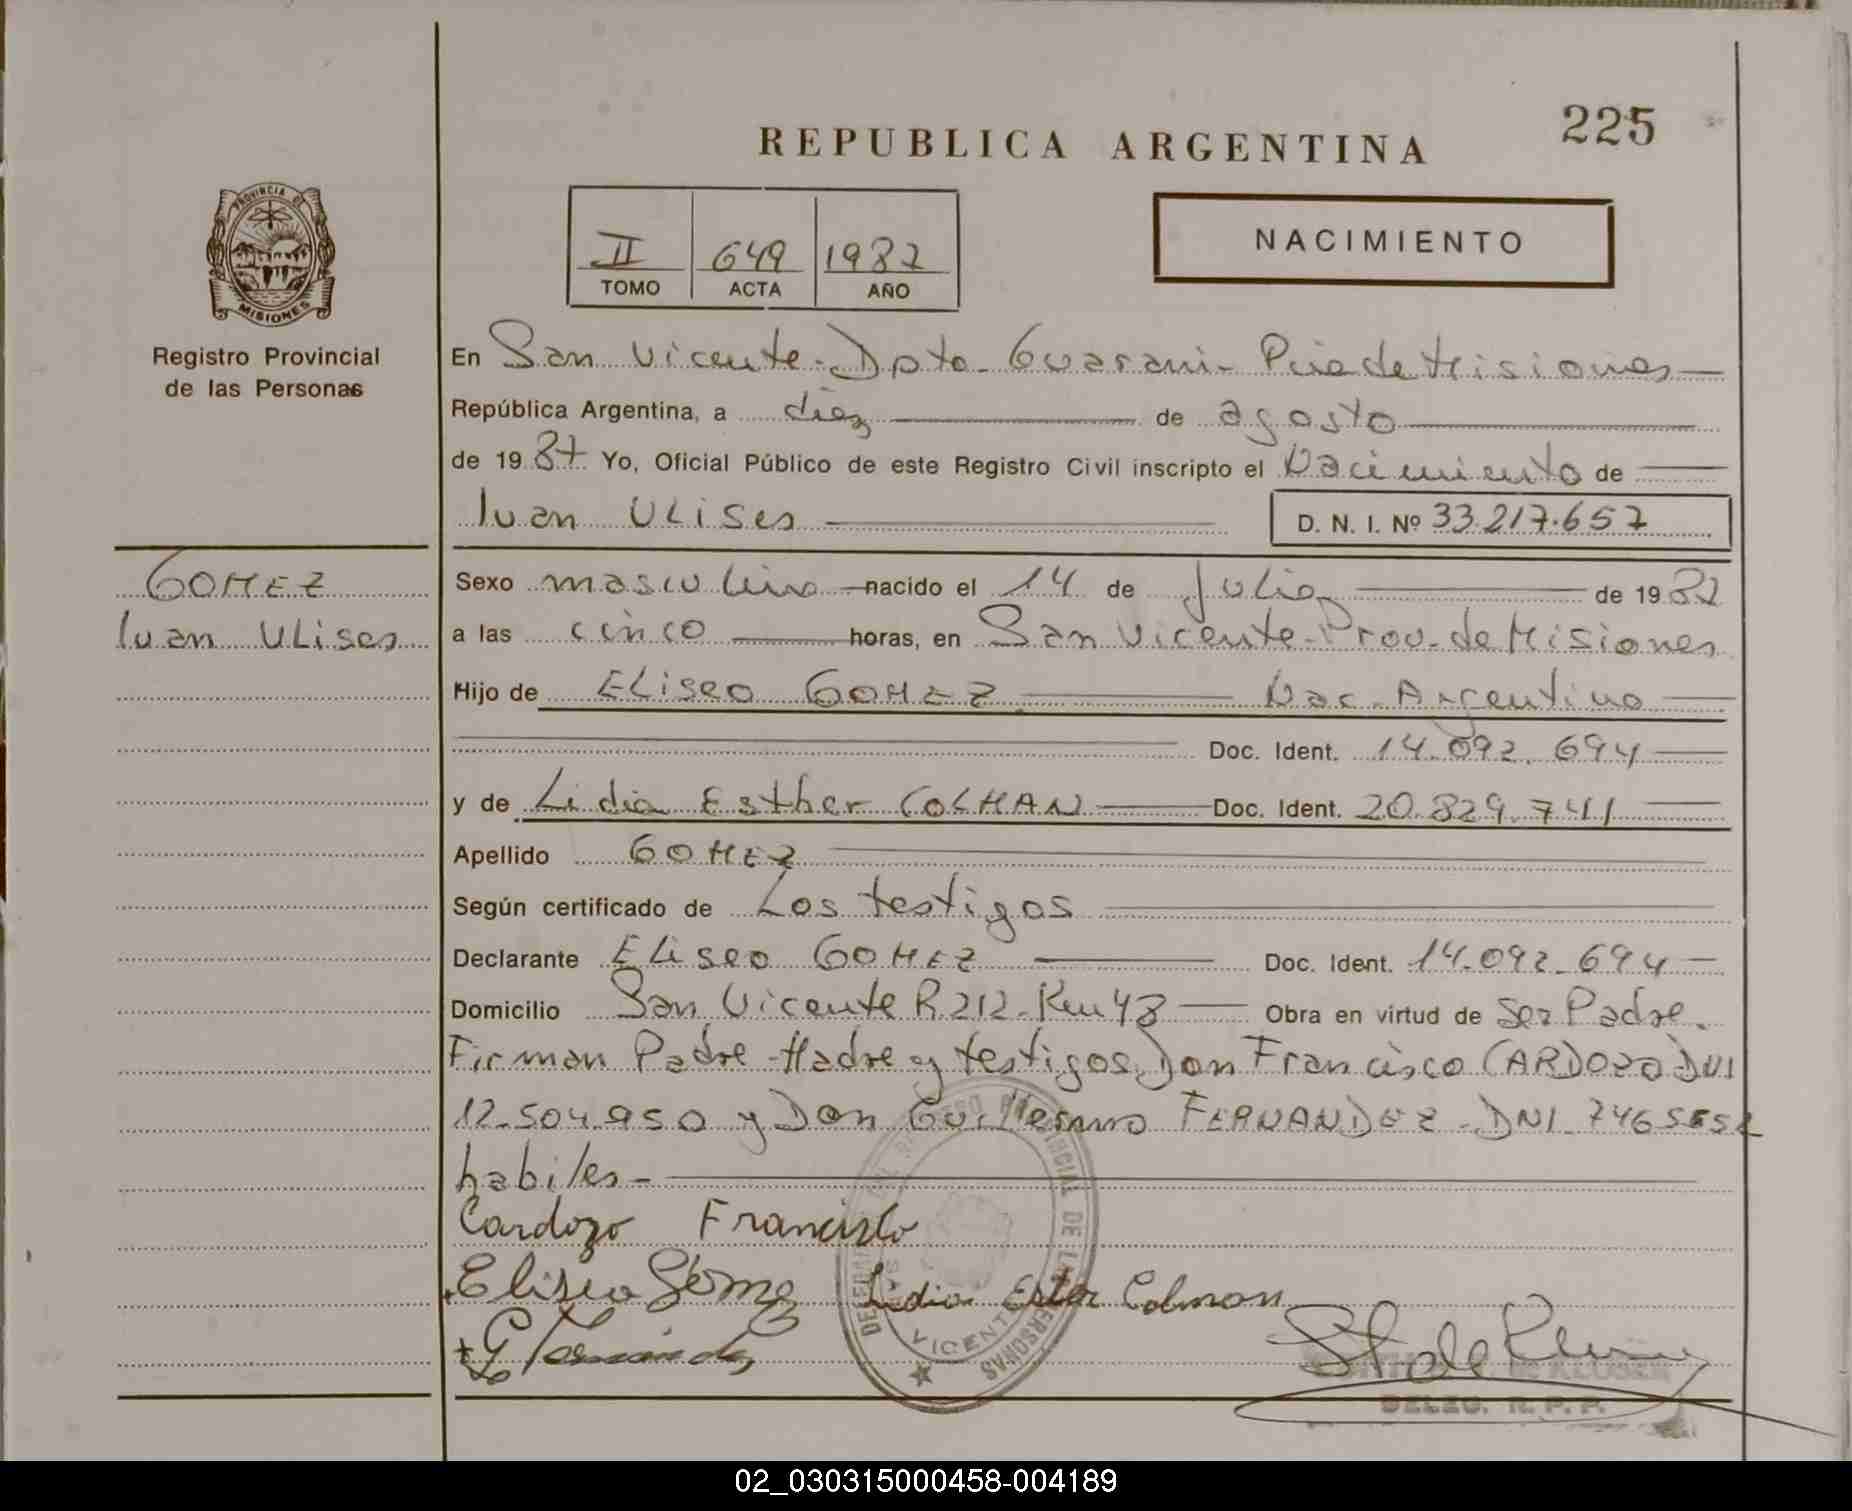 225
REPUBLICA ARGENTINA
PROVINCIA DE
MISIONES
II 649 1987
TOMO ACTA AÑO
NACIMIENTO
Registro Provincial
de las Personas
En San Vicente - Dpto - Guarani - Pcia de Misiones
República Argentina, a diez de agosto
de 19 87 Yo, Oficial Público de este Registro Civil inscripto el Nacimiento de
Iuan ULises D. N. I. Nº 33.217.657
GOMEZ
Iuan ULises
Sexo masculino nacido el 14 de Julio de 19 87
a las cinco horas, en San Vicente - Prov. de Misiones
Hijo de ELiseo GOMEZ Nac. Argentino
Doc. Ident. 14.092.694
y de Lidia Esther COLMAN Doc. Ident. 20.829.741
Apellido GOMEZ
Según certificado de Los testigos
Declarante ELiseo GOMEZ Doc. Ident. 14.092.694
Domicilio San Vicente R 212 - Km 48 Obra en virtud de Ser Padre.
Firman Padre - Madre y testigos Don Francisco CARDOZO DNI
12.504.950 y Don Guillermo FERNANDEZ - DNI
habiles -
Cardozo Francisco
Eliseo Gómez Lidia Ester Colman
G Fernández
VICENTE
DELEG. R. P. P.
02_030315000458-004189